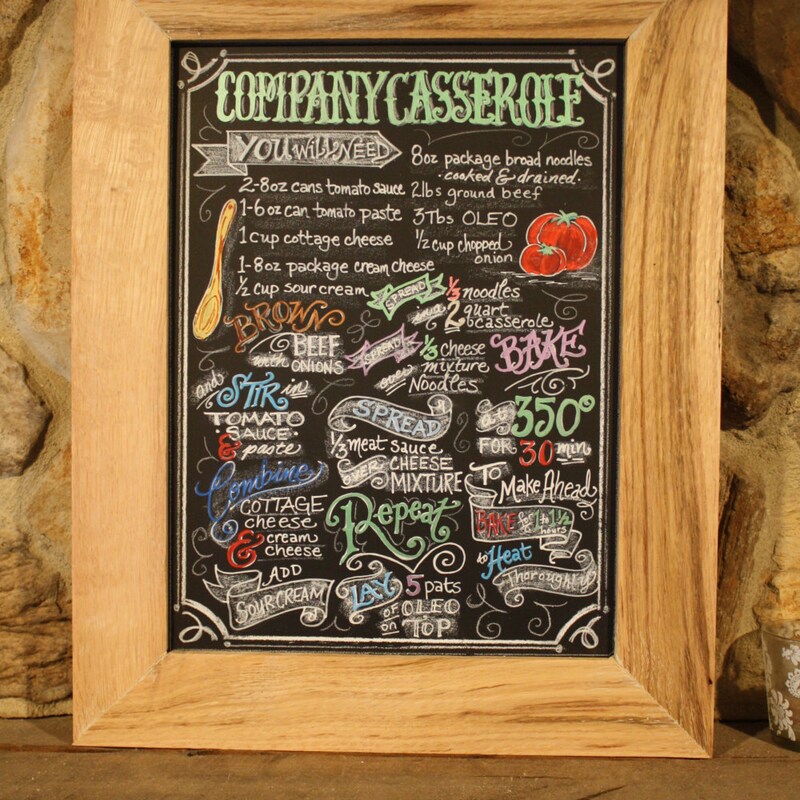 COMPANY CASSEROLE
YOU WILL NEED
2-8oz cans tomato sauce
1-6 oz can tomato paste
1 cup cottage cheese
1-8oz package cream cheese
½ cup sour cream
8oz package broad noodles
·cooked & drained·
2lbs ground beef
3Tbs OLEO
½ cup chopped
onion
BROWN
BEEF
with ONIONS
and
STIR in
TOMATO
·SAUCE·
& paste
Combine
COTTAGE
cheese
& cream
cheese
ADD
SOUR CREAM
SPREAD ⅓ noodles
in a 2 quart
casserole
SPREAD ⅓ cheese
mixture
over Noodles
SPREAD
⅓ meat sauce
OVER CHEESE
MIXTURE
Repeat
LAY 5 pats
of OLEO
on TOP
BAKE
at 350°
FOR 30 min.
To
Make Ahead
BAKE for 1 to 1½
hours
to Heat
Thoroughly